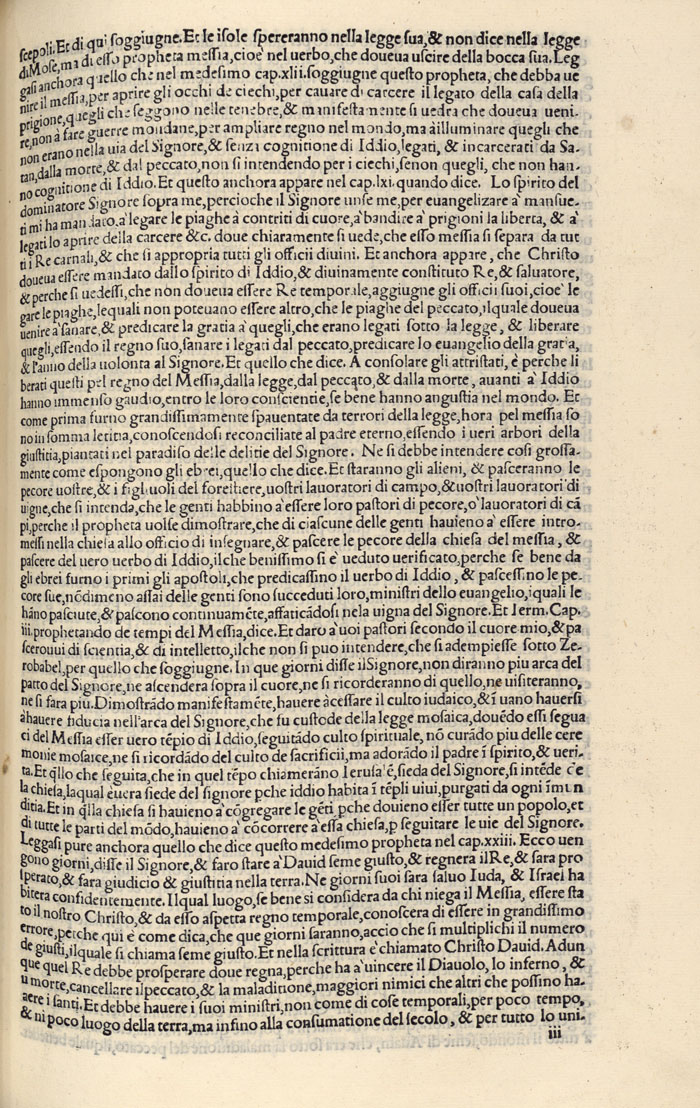 scepoli. Et di qui soggiugne. Et le isole spereranno nella legge sua, & non dice nella legge
di Mose, ma di esso propheta messia, cioe' nel uerbo, che doueua uscire della bocca sua. Leg
gasi anchora quello che nel medesimo cap. xlii. soggiugne questo propheta, che debba ue
nire il messia, per aprire gli occhi de ciechi, per cauare di carcere il legato della casa della
prigione, quegli che seggono nelle tenebre, & manifestamente si uedra che doueua ueni-
re, non a fare guerre mondane, per ampliare regno nel mondo, ma à illuminare quegli che
non erano nella uia del Signore, & senza cognitione di Iddio, legati, & incarcerati da Sa-
tan, dalla morte, & dal peccato, non si intendendo per i ciechi, senon quegli, che non han-
no cognitione di Iddio. Et questo anchora appare nel cap. lxi. quando dice. Lo spirito del
dominatore Signore sopra me, percioche il Signore unse me, per euangelizare a' mansue-
ti mi ha mandato, a' legare le piaghe à contriti di cuore, a' bandire a' prigioni la liberta, & a'
legati lo aprire della carcere &c. doue chiaramente si uede, che esso messia si separa da tut
ti i Re carnali, & che si appropria tutti gli officii diuini. Et anchora appare, che Christo
doueua essere mandato dallo spirito di Iddio, & diuinamente constituto Re, & saluatore,
& perche si uedessi, che non doueua essere Re temporale, aggiugne gli officii suoi, cioe' le
gare le piaghe, lequali non poteuano essere altro, che le piaghe del peccato, ilquale doueua
uenire a' sanare, & predicare la gratia a' quegli, che erano legati sotto la legge, & liberare
quegli, essendo il regno suo, sanare i legati dal peccato, predicare lo euangelio della gratia,
& l'anno della uolonta al Signore. Et quello che dice. A consolare gli attristati, è perche li
berati questi pel regno del Messia, dalla legge, dal peccato, & dalla morte, auanti a' Iddio
hanno immenso gaudio, entro le loro conscientie, se bene hanno angustia nel mondo. Et
come prima furno grandissimamente spauentate da terrori della legge, hora pel messia so
no in somma letitia, conoscendosi reconciliate al padre eterno, essendo i ueri arbori della
giustitia, piantati nel paradiso delle delitie del Signore. Ne si debbe intendere cosi grossa-
mente come espongono gli ebrei, quello che dice. Et staranno gli alieni, & pasceranno le
pecore uostre, & i figliuoli del forestiere, uostri lauoratori di campo, & uostri lauoratori di
uigne, che si intenda, che le genti habbino a' essere loro pastori di pecore, o' lauoratori di cã
pi, perche il propheta uolse dimostrare, che di ciascune delle genti hauieno a' essere intro-
messi nella chiesa allo officio di insegnare, & pascere le pecore della chiesa del messia, &
pascere del uero uerbo di Iddio, ilche benissimo si e' ueduto uerificato, perche se bene da
gli ebrei furno i primi gli apostoli, che predicassino il uerbo di Iddio, & pascessino le pe-
core sue, nõdimeno assai delle genti sono succeduti loro, ministri dello euangelio, iquali le
hãno pasciute, & pascono continuamẽte, affaticãdosi nela uigna del Signore. Et Ierm. Cap.
iii. prophetando de tempi del Messia, dice. Et daro a' uoi pastori secondo il cuore mio, & pa
scerouui di scientia, & di intelletto, ilche non si puo intendere, che si adempiesse sotto Ze-
robabel, per quello che soggiugne. In que giorni disse il Signore, non diranno piu arca del
patto del Signore, ne ascendera sopra il cuore, ne si ricorderanno di quello, ne uisiteranno,
ne si fara piu. Dimostrãdo manifestamẽte, hauere à cessare il culto iudaico, & ĩ uano hauersi
a' hauere fiducia nell'arca del Signore, che fu custode della legge mosaica, douẽdo essi segua
ci del Messia esser uero tẽpio di Iddio, seguitãdo culto spirituale, nõ curãdo piu delle cere
monie mosaice, ne si ricordãdo del culto de sacrificii, ma adorãdo il padre ĩ spirito, & ueri-
ta. Et q̃llo che seguita, che in quel tẽpo chiamerãno Ierusalẽ, sieda del Signore, si intẽde che
la chiesa, laqual euera siede del signore pche iddio habita ĩ tẽpli uiui, purgati da ogni ĩmun
ditia. Et in q̃lla chiesa si hauieno a' cõgregare le gẽti pche douieno esser tutte un popolo, et
di tutte le parti del mõdo, hauieno a' cõcorrere a' essa chiesa, p seguitare le uie del Signore.
Leggasi pure anchora quello che dice questo medesimo propheta nel cap. xxiii. Ecco uen
gono giorni, disse il Signore, & faro stare a' Dauid seme giusto, & regnera il Re, & sara pro
sperato, & fara giudicio & giustitia nella terra. Ne giorni suoi sara saluo Iuda, & Israel ha
bitera confidentemente. Ilqual luogo, se bene si considera da chi niega il Messia, essere sta
to il nostro Christo, & da esso aspetta regno temporale, conoscera di essere in grandissimo
errore, perche qui e' come dica, che que giorni saranno, accio che si multiplichi il numero
de giusti, ilquale si chiama seme giusto. Et nella scrittura e' chiamato Christo Dauid. Adun
que quel Re debbe prosperare doue regna, perche ha a' uincere il Diauolo, lo inferno, &
morte, cancellare il peccato, & la maladitione, maggiori nimici che altri che possino ha-
uere i santi. Et debbe hauere i suoi ministri, non come di cose temporali, per poco tempo,
& ni poco luogo della terra, ma infino alla consumatione del secolo, & per tutto lo uni-
iii